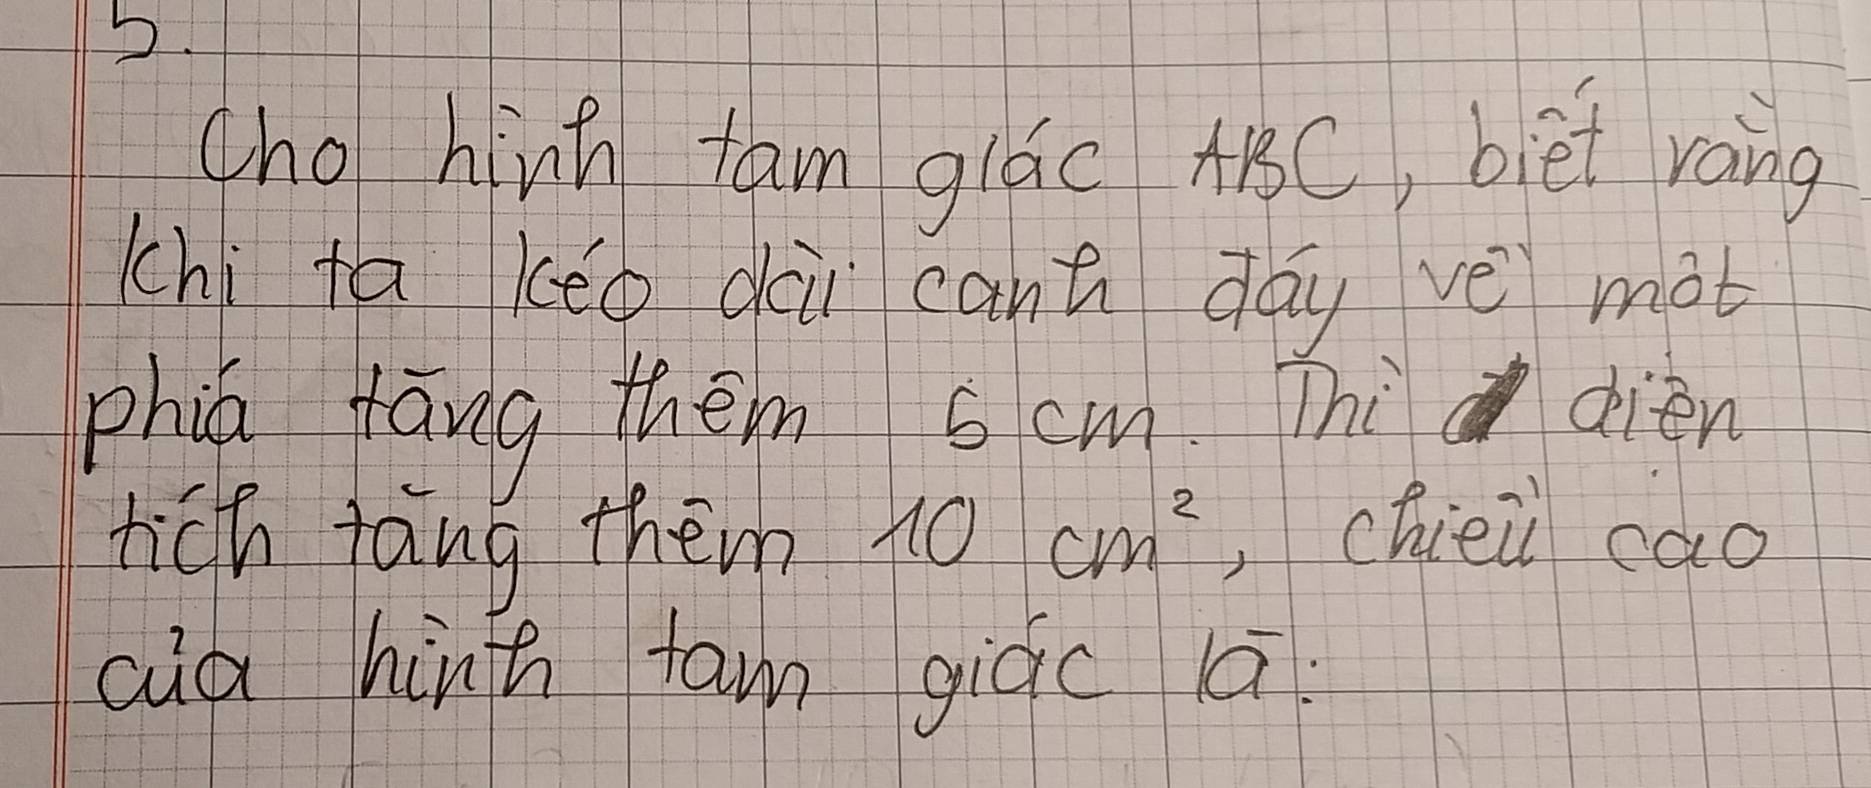 5.
Cho hình tam giác ABC, biết rằng
khi ta kéo dài cạnh đáy về một
phía tăng thêm 5 cm. Thì diện
tích tăng thêm 10 cm², chiều cao
của hình tam giác là: